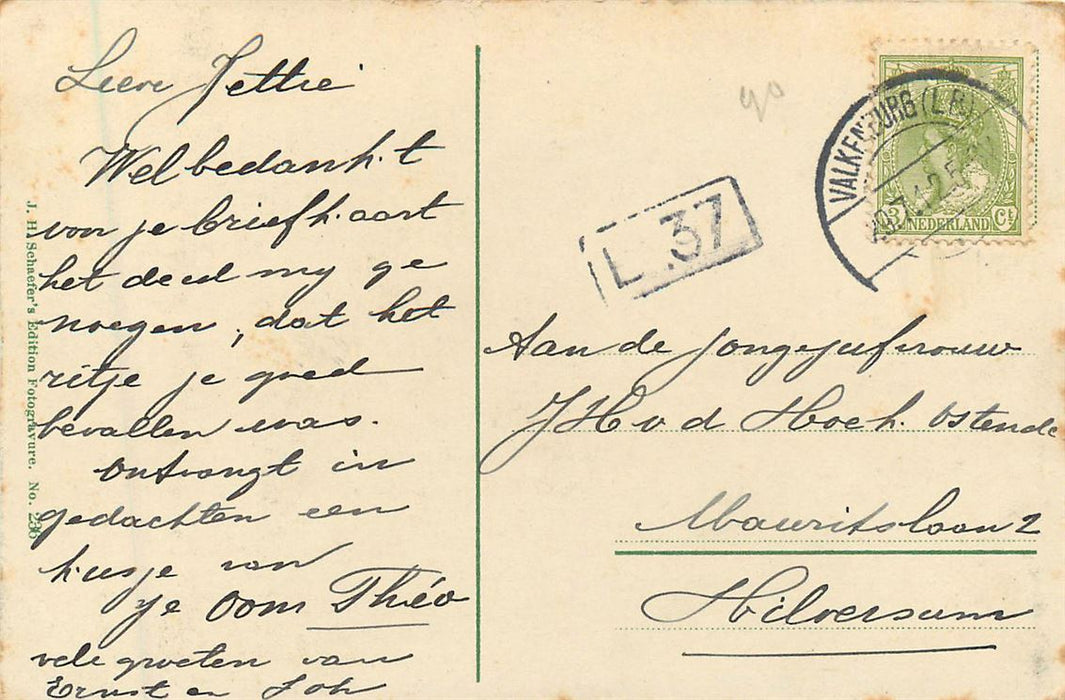 Lieve Jettie
Wel bedankt
voor je briefkaart
het deed my ge
noegen, dat het
ritje je goed
bevallen was.
Ontvangt in
gedachten een
kusje van
je Oom Théo
vele groeten van
Ernst en Joh
J. H. Schaefer's Edition Fotogravure. No. 236
90
L 37
VALKENBURG (LB)
3 NEDERLAND Ct
Aan de Jongejufvrouw
J H v d Hoek. Ostende
Mauritslaan 2
Hilversum